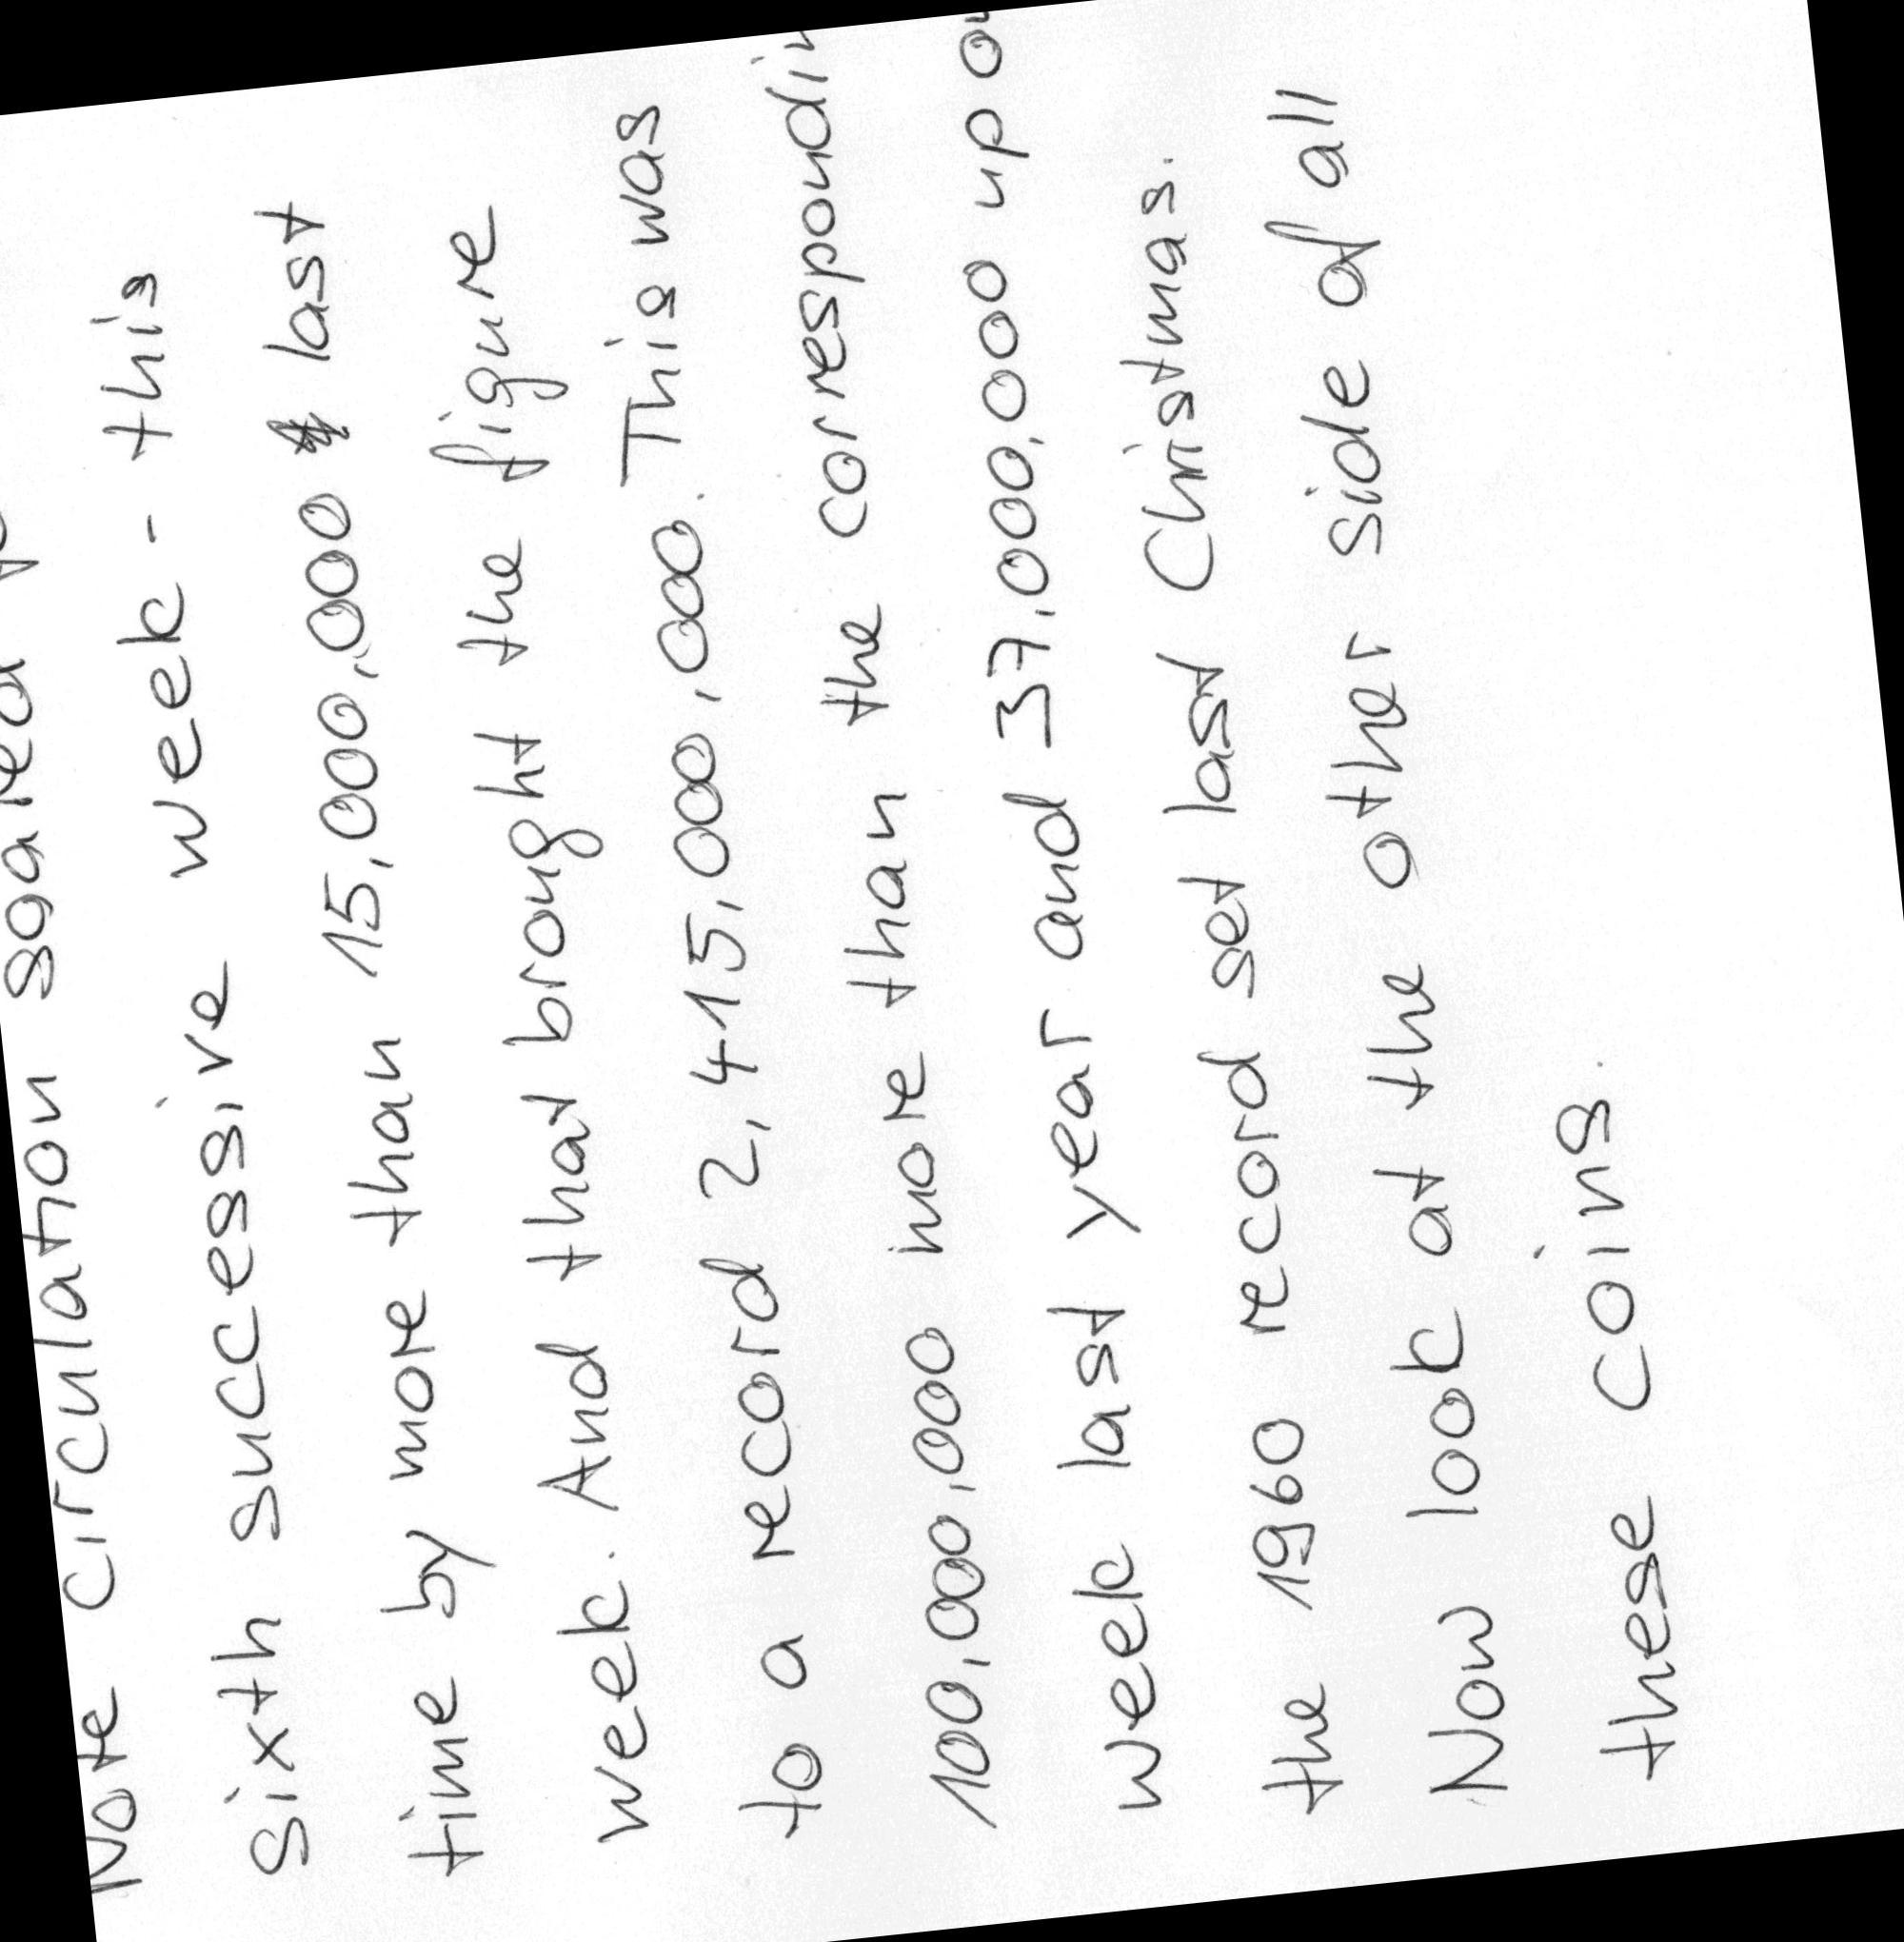 Note circulation soared
sixth successive week - this
time by more than 15,000,000 last
week. And that brought the figure
to a record 2,415,000,000. This was
100,000,000 more than the correspondin
week last year and 37,000,000 up on
the 1960 record set last Christmas.
Now look at the other side of all
these coins.